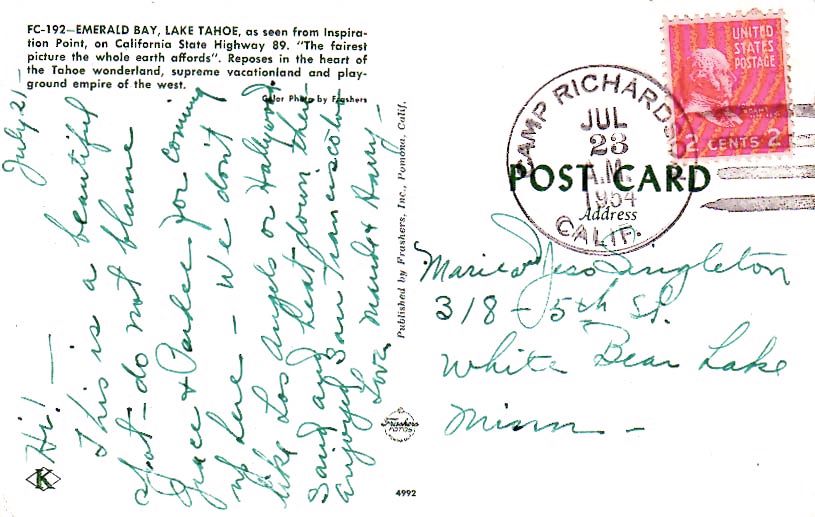 FC-192—EMERALD BAY, LAKE TAHOE, as seen from Inspira-
tion Point, on California State Highway 89. "The fairest
picture the whole earth affords". Reposes in the heart of
the Tahoe wonderland, supreme vacationland and play-
ground empire of the west.
Color Photo by Frashers
July 21—
Hi! —
This is a beautiful
spot — do not blame
Grace & Parker for coming
up here — We don't
like Los Angels or Hollywood
Said and heat down there
enjoyed San Francisco tho
Love Maude & Harry—
Published by Frashers, Inc., Pomona, Calif.
Frashers
FOTOS
K
4992
UNITED
STATES
POSTAGE
2 CENTS 2
CAMP RICHARDSON
JUL
23
A.M.
1954
CALIF.
POST CARD
Address
Marie Singleton
318 - 5th St.
White Bear Lake
Minn —